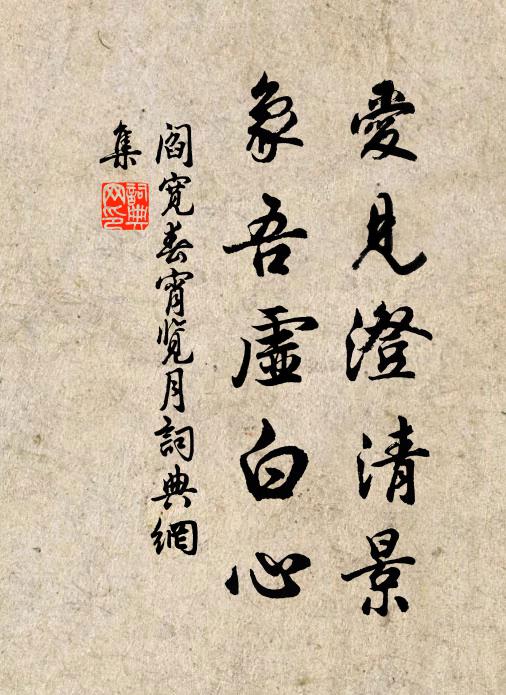 愛見澄清景
象吾虛白心
閻寬春宵覽月詞典網
集
詞典
网印